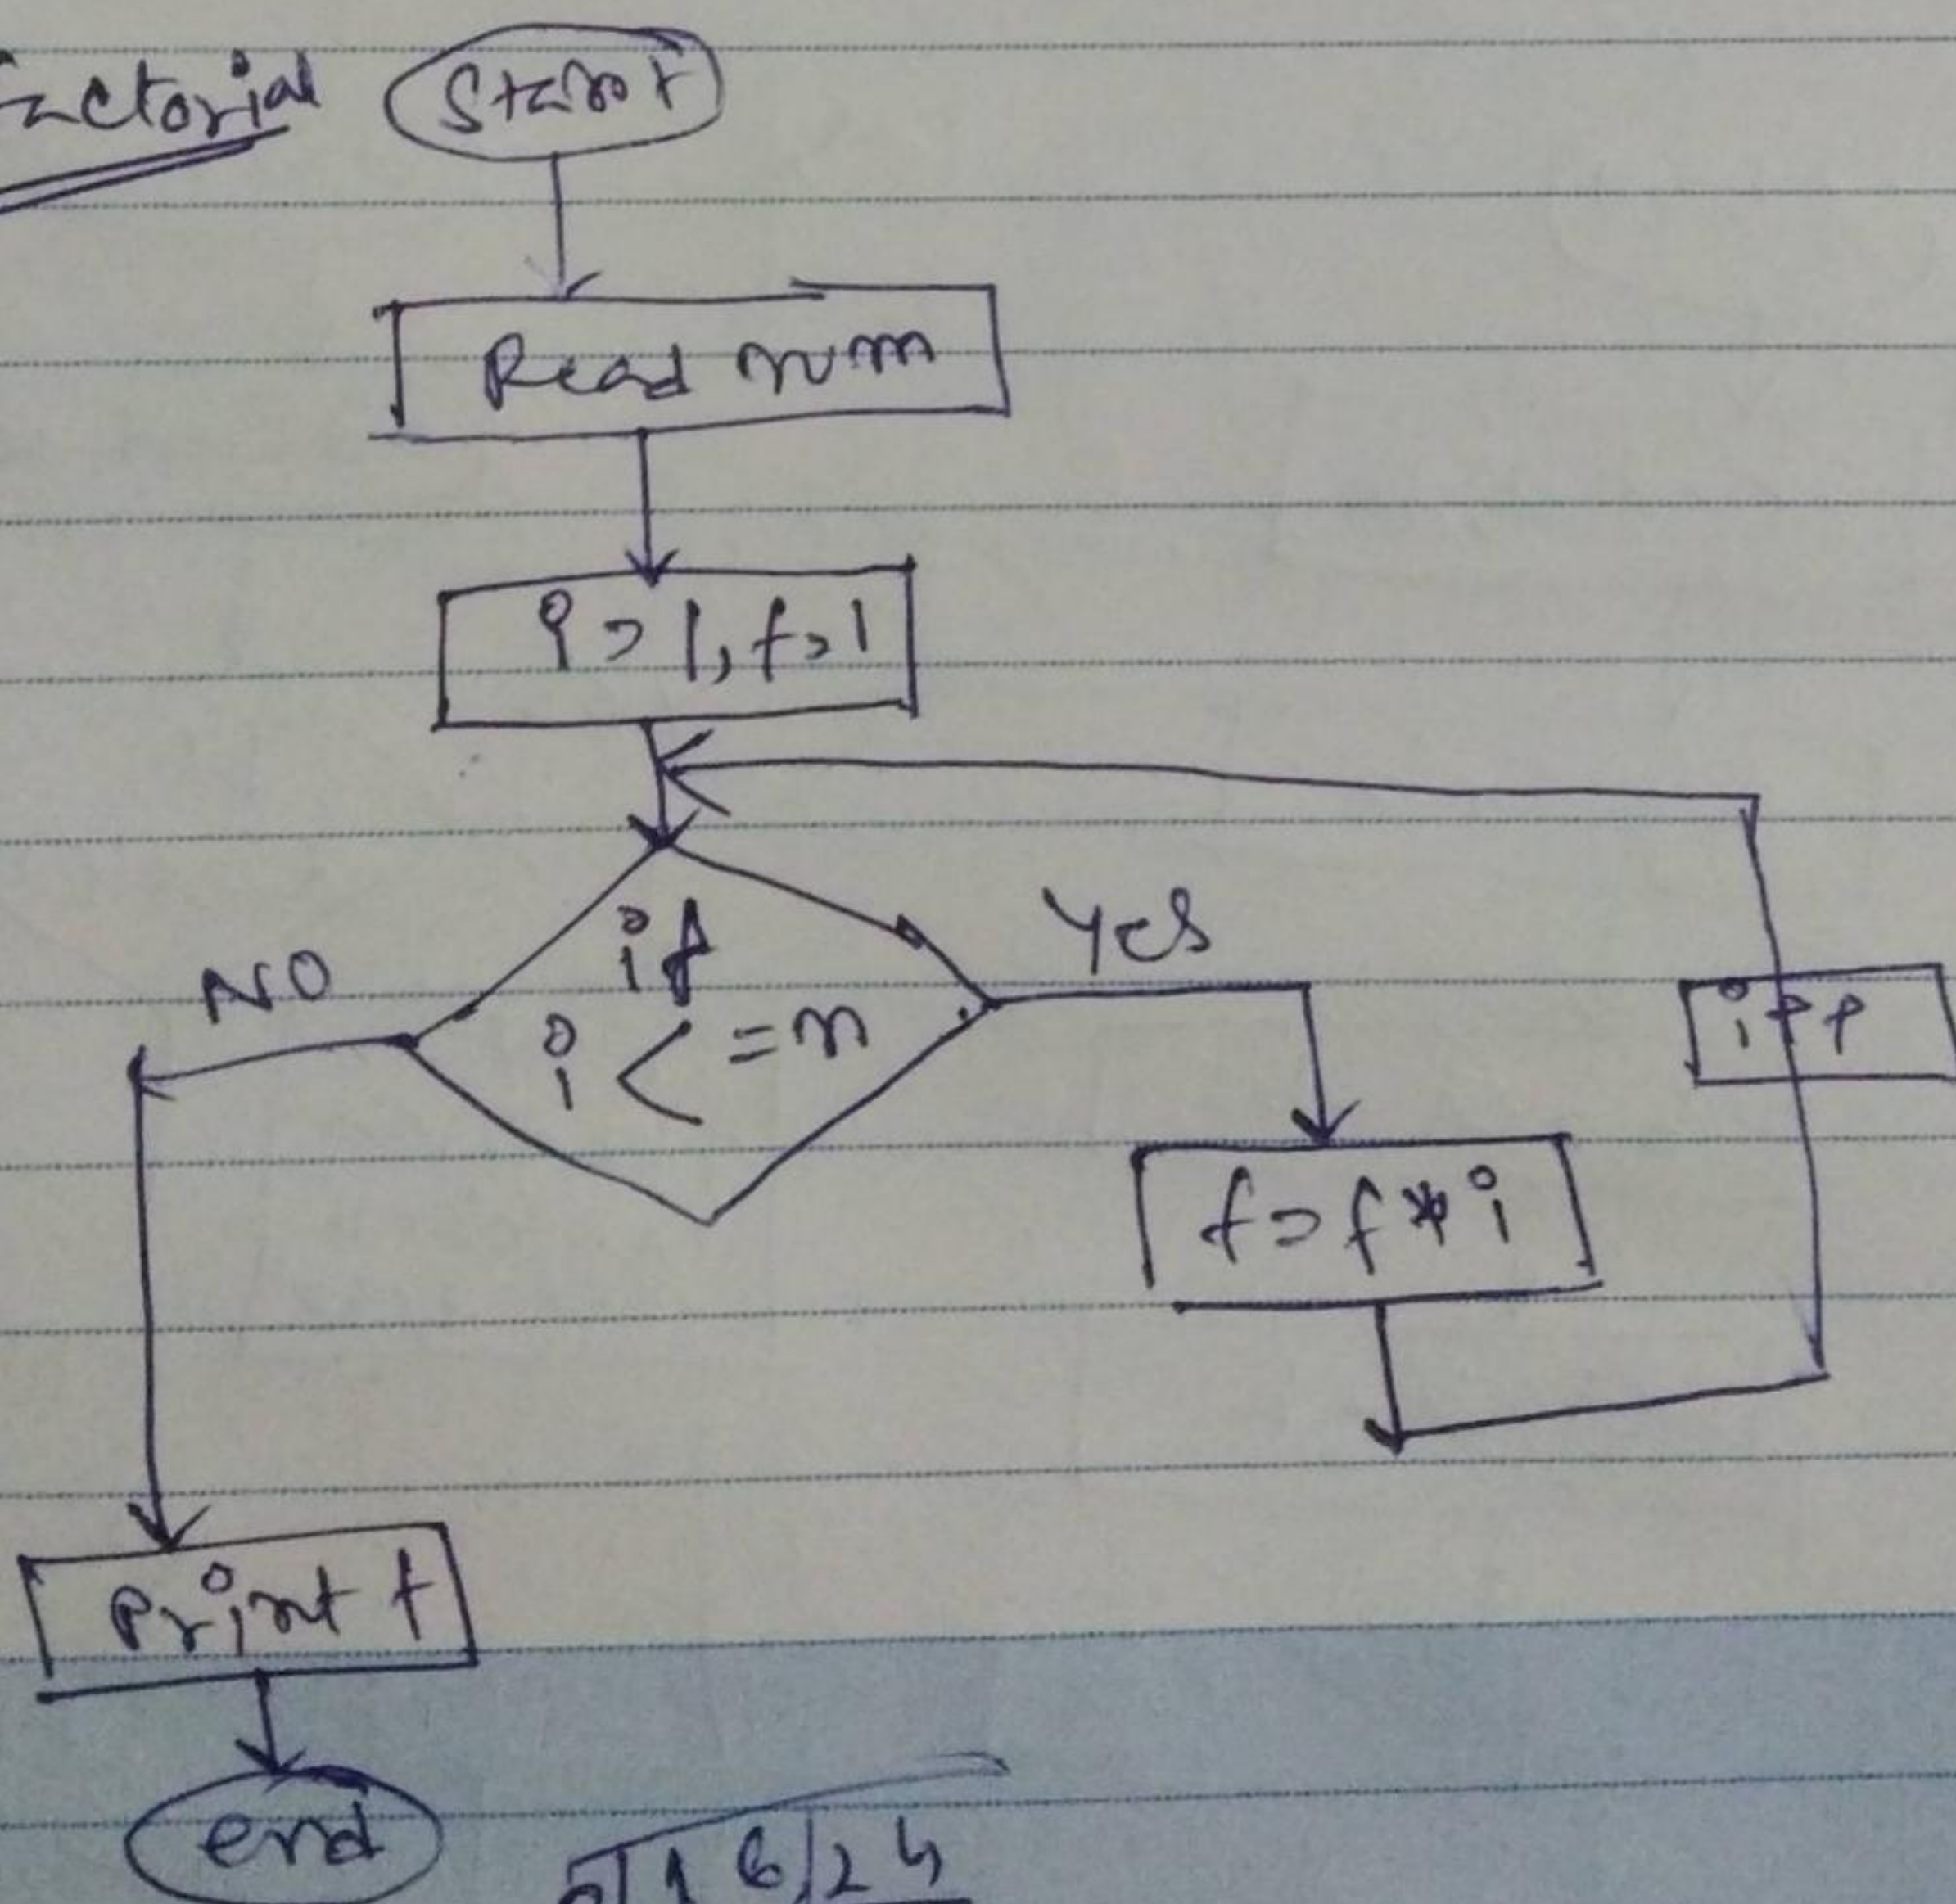 Factorial
Start
Read num
i=1, f=1
if
i <=n
NO
Yes
i++
f=f*i
Print f
end